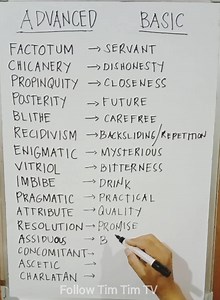 ADVANCED BASIC
FACTOTUM → SERVANT
CHICANERY → DISHONESTY
PROPINQUITY → CLOSENESS
POSTERITY → FUTURE
BLITHE → CAREFREE
RECIDIVISM → BACKSLIDING/REPETITION
ENIGMATIC → MYSTERIOUS
VITRIOL → BITTERNESS
IMBIBE → DRINK
PRAGMATIC → PRACTICAL
ATTRIBUTE → QUALITY
RESOLUTION → PROMISE
ASSIDUOUS → B
CONCOMITANT →
ASCETIC →
CHARLATAN →
Follow Tim Tim TV